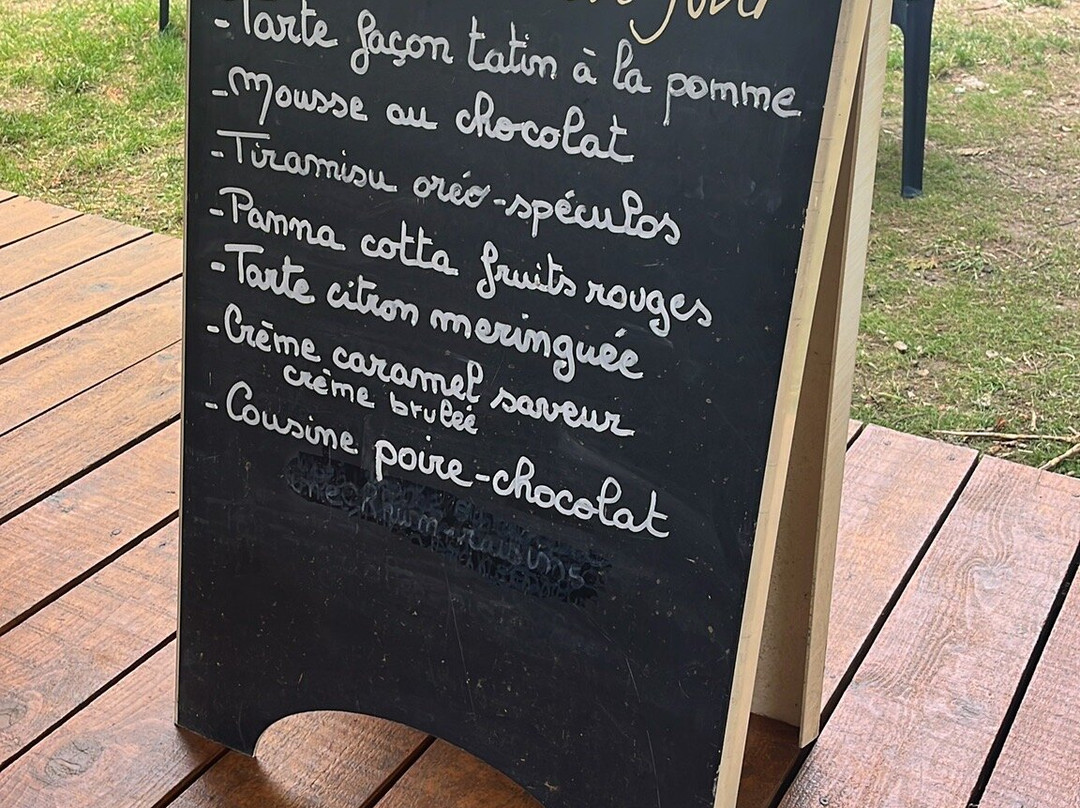 jour
-Tarte façon tatin à la pomme
-Mousse au chocolat
-Tiramisu oréo-spéculos
-Panna cotta fruits rouges
-Tarte citron meringuée
-Crème caramel saveur
crème brulée
-Cousine poire-chocolat